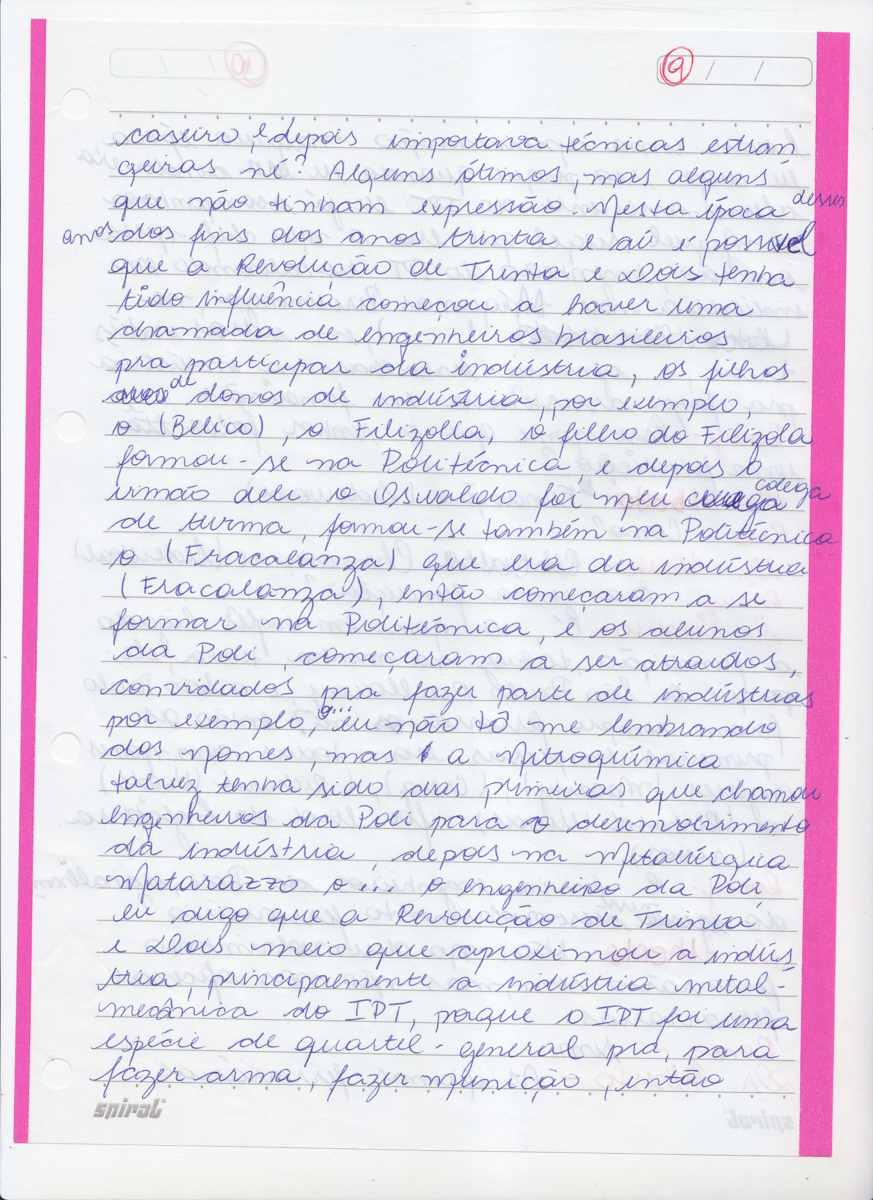 9 / /
caseiro, e depois importava técnicas estran
geiras né? Alguns ótimos, mas alguns
que não tinham expressão. Nesta época desses
anos dos fins dos anos trinta e aí é possível
que a Revolução de Trinta e Dois tenha
tido influência começou a haver uma
chamada de engenheiros brasileiros
pra participar da indústria, os filhos
de donos de indústria, por exemplo,
o (Belico), o Filizolla, o filho do Filizola
formou-se na Politécnica, e depois o
irmão dele o Osvaldo foi meu colega
de turma, formou-se também na Politécnica
o (Fracalanza) que era da indústria
(Fracalanza), então começaram a se
formar na Politécnica, e os alunos
da Poli, começaram a ser atraídos,
convidados pra fazer parte de indústrias
por exemplo, o... eu não tô me lembrando
dos nomes, mas a Nitroquímica
talvez tenha sido das primeiras que chamou
engenheiros da Poli para o desenvolvimento
da indústria, depois na Metalúrgica
Matarazzo o... o engenheiro da Poli
eu digo que a Revolução de Trinta
e Dois meio que aproximou a indús
tria, principalmente a indústria metal-
mecânica do IPT, porque o IPT foi uma
espécie de quartel-general pra, para
fazer arma, fazer munição, então
spiral